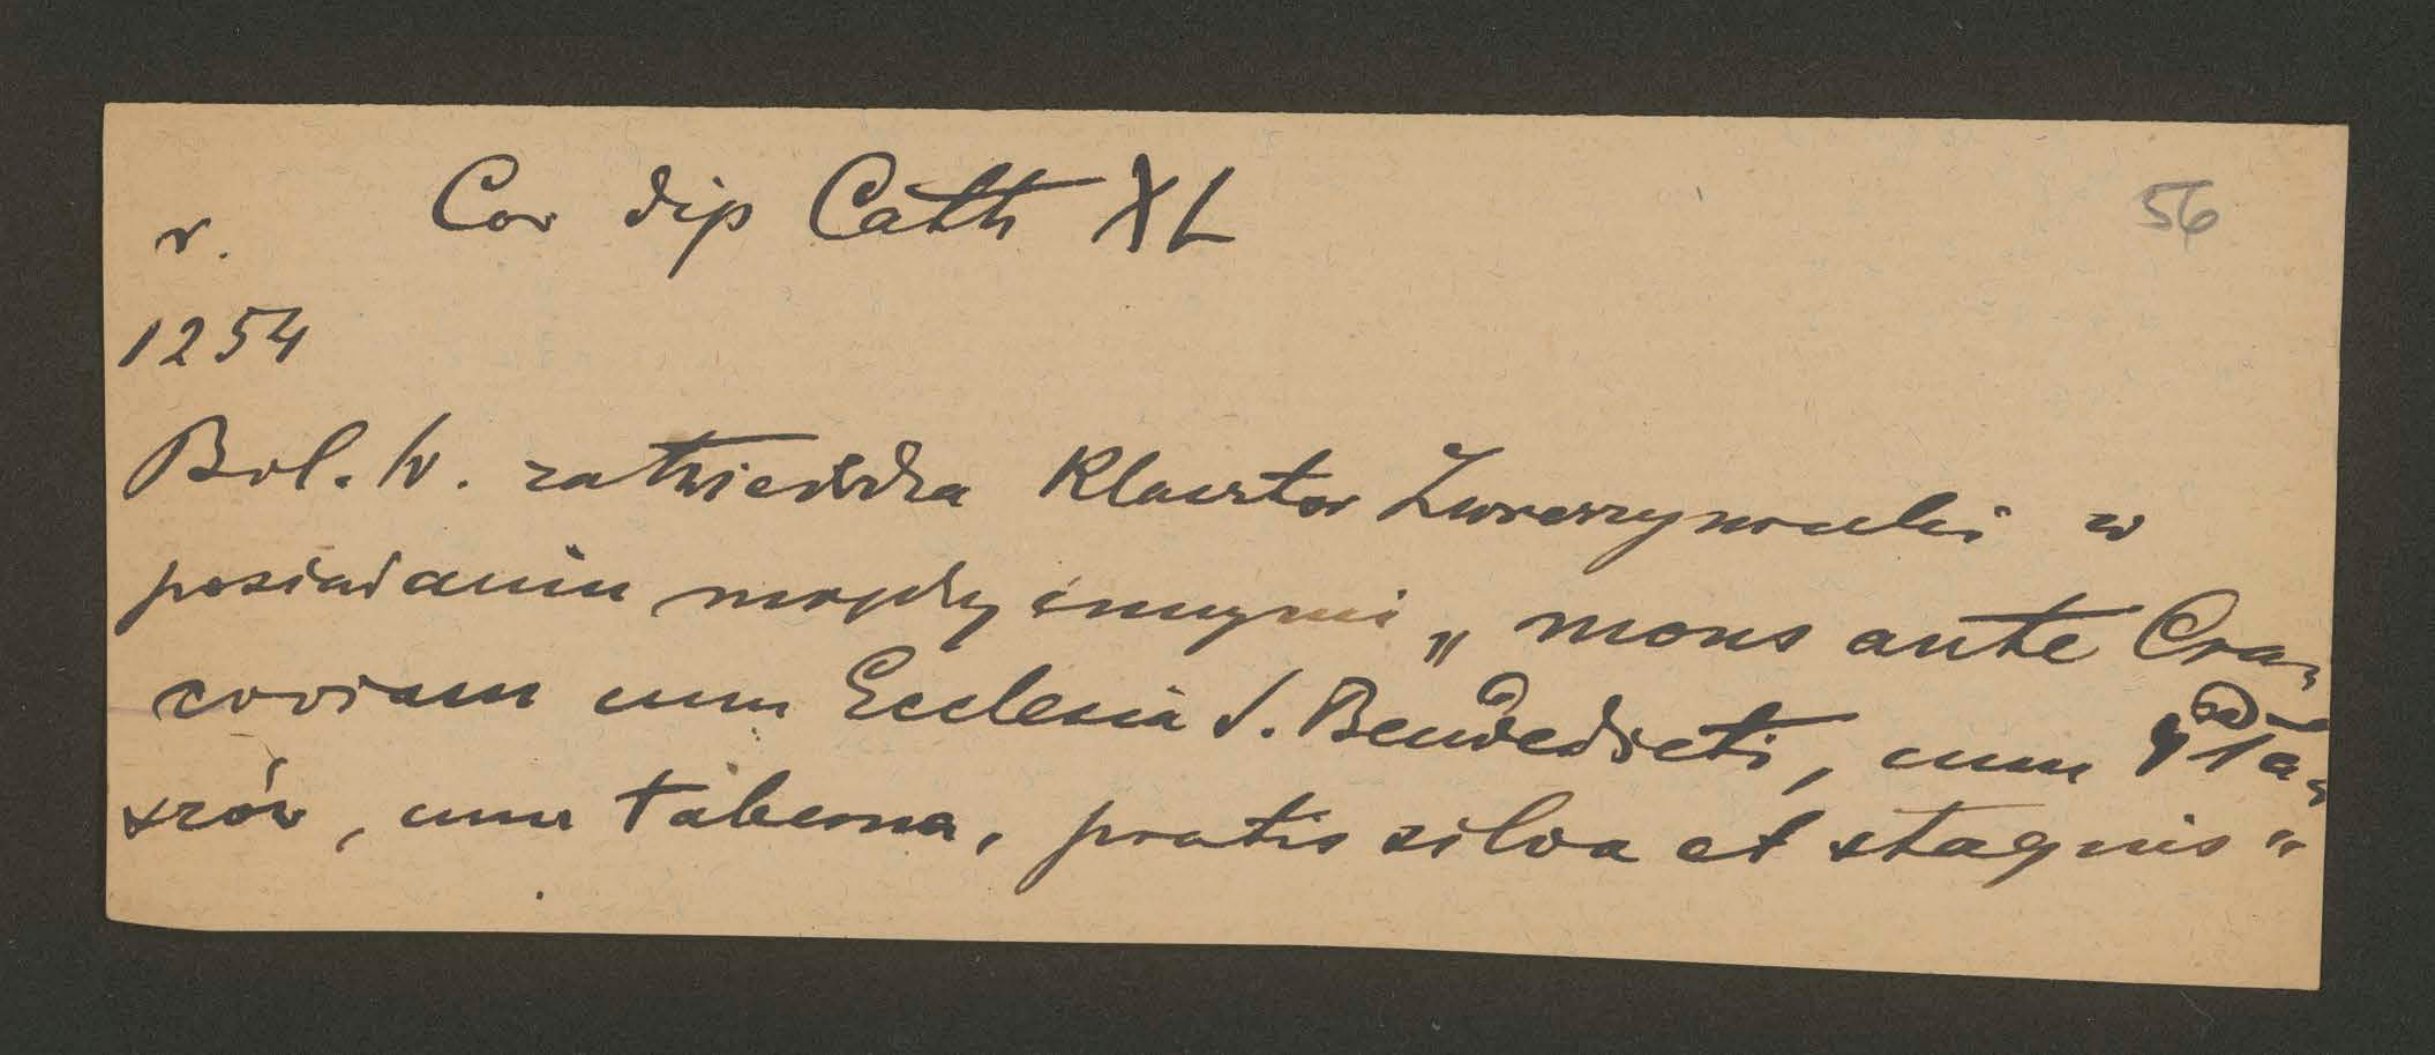 Cod dip Cath XL
56
r.
1254
Bol. W. zatwierdza Klasztor Zwierzyniecki w
posiadaniu między innymi „ mons ante Cra-
coviam cum Ecclesia S. Benedicti, cum
, cum taberna, pratis silva et stagnis "